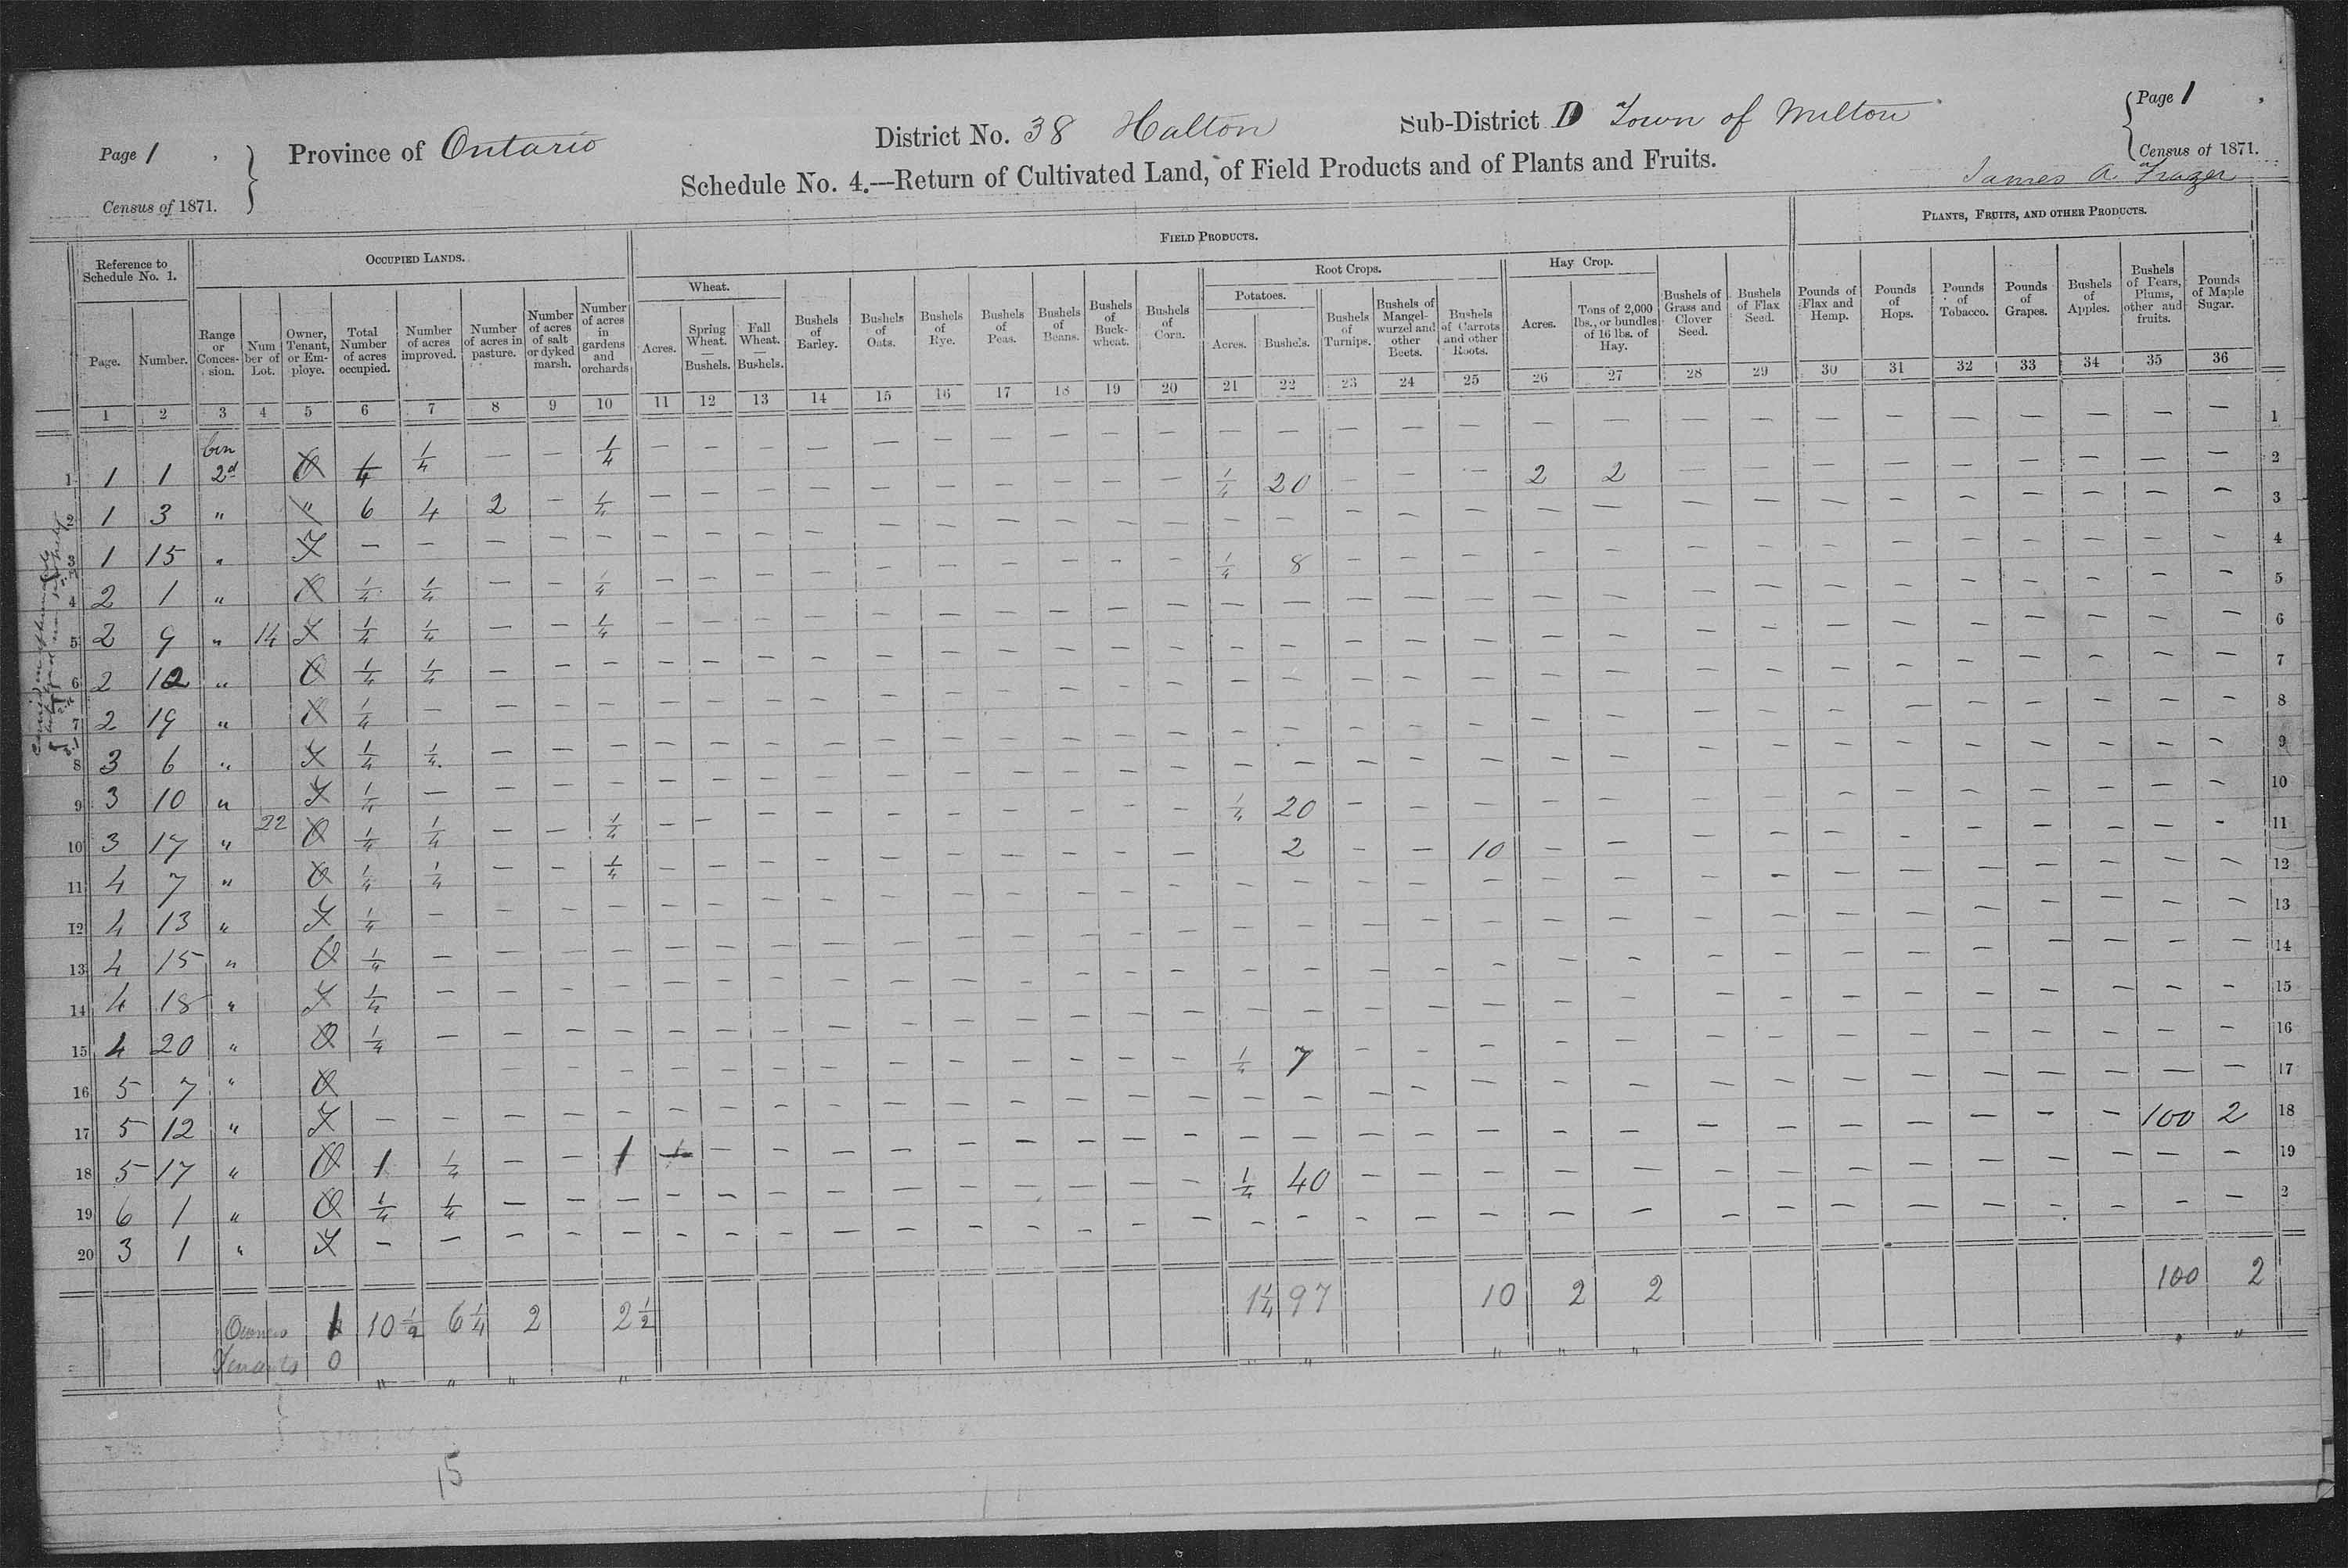 Page 1
Census of 1871.
Province of Ontario
District No. 38 Halton
Sub-District D Town of Milton
Page 1
Census of 1871.
Schedule No. 4.—Return of Cultivated Land, of Field Products and of Plants and Fruits.
James A. Frazer
Reference to Schedule No. 1.
Occupied Lands.
Field Products.
Plants, Fruits, and other Products.
Wheat.
Root Crops.
Potatoes.
Hay Crop.
Page.
Number.
Range or Concession.
Number of Lot.
Owner, Tenant, or Employe.
Total Number of acres occupied.
Number of acres improved.
Number of acres in pasture.
Number of acres of salt or dyked marsh.
Number of acres in gardens and orchards
Acres.
Spring Wheat. — Bushels.
Fall Wheat. — Bushels.
Bushels of Barley.
Bushels of Oats.
Bushels of Rye.
Bushels of Peas.
Bushels of Beans.
Bushels of Buck-wheat.
Bushels of Corn.
Acres.
Bushels.
Bushels of Turnips.
Bushels of Mangel-wurzel and other Beets.
Bushels of Carrots and other Roots.
Acres.
Tons of 2,000 lbs., or bundles of 16 lbs. of Hay.
Bushels of Grass and Clover Seed.
Bushels of Flax Seed.
Pounds of Flax and Hemp.
Pounds of Hops.
Pounds of Tobacco.
Pounds of Grapes.
Bushels of Apples.
Bushels of Pears, Plums, other and fruits.
Pounds of Maple Sugar.
1 2 3 4 5 6 7 8 9 10 11 12 13 14 15 16 17 18 19 20 21 22 23 24 25 26 27 28 29 30 31 32 33 34 35 36
1 1 1 Con 2d O 1/4 1/4 — — 1/4 — — — — — — — — — — — — — — — — — — — — — — — — — — 1
2 1 3 " " 6 4 2 — 1/4 — — — — — — — — — — 1/4 20 — — — 2 2 — — — — — — — — — 2
3 1 15 " T — — — — — — — — — — — — — — — — — — — — — — — — — — — — — — — 3
4 2 1 " O 1/4 1/4 — — 1/4 — — — — — — — — — — 1/4 8 — — — — — — — — — — — — — — 4
5 2 9 " 14 T 1/4 1/4 — — 1/4 — — — — — — — — — — — — — — — — — — — — — — — — — — 5
6 2 12 " O 1/4 1/4 — — — — — — — — — — — — — — — — — — — — — — — — — — — — — 6
7 2 19 " O 1/4 — — — — — — — — — — — — — — — — — — — — — — — — — — — — — — 7
8 3 6 " T 1/4 1/4 — — — — — — — — — — — — — — — — — — — — — — — — — — — — — 8
9 3 10 " T 1/4 — — — — — — — — — — — — — — — — — — — — — — — — — — — — — — 9
10 3 17 " 22 O 1/4 1/4 — — 1/4 — — — — — — — — — — 1/4 20 — — — — — — — — — — — — — — 10
11 4 7 " O 1/4 1/4 — — 1/4 — — — — — — — — — — 2 — — 10 — — — — — — — — — — — 11
12 4 13 " T 1/4 — — — — — — — — — — — — — — — — — — — — — — — — — — — — — — 12
13 4 15 " O 1/4 — — — — — — — — — — — — — — — — — — — — — — — — — — — — — — 13
14 4 18 " T 1/4 — — — — — — — — — — — — — — — — — — — — — — — — — — — — — — 14
15 4 20 " O 1/4 — — — — — — — — — — — — — — — — — — — — — — — — — — — — — — 15
16 5 7 " O — — — — — — — — — — — — — 1/4 7 — — — — — — — — — — — — — — 16
17 5 12 " T — — — — — — — — — — — — — — — — — — — — — — — — — — — — — — — 17
18 5 17 " O 1 1/4 — — 1 — — — — — — — — — — — — — — — — — — — — — — — — 100 2 18
19 6 1 " O 1/4 1/4 — — — — — — — — — — — — — 1/4 40 — — — — — — — — — — — — — — 19
20 3 1 " T — — — — — — — — — — — — — — — — — — — — — — — — — — — — — — — 2
Owners 10 1/2 6 1/4 2 2 1/2 1 1/4 97 10 2 2 100 2
Tenants 0 " " " " " " " " " "
15